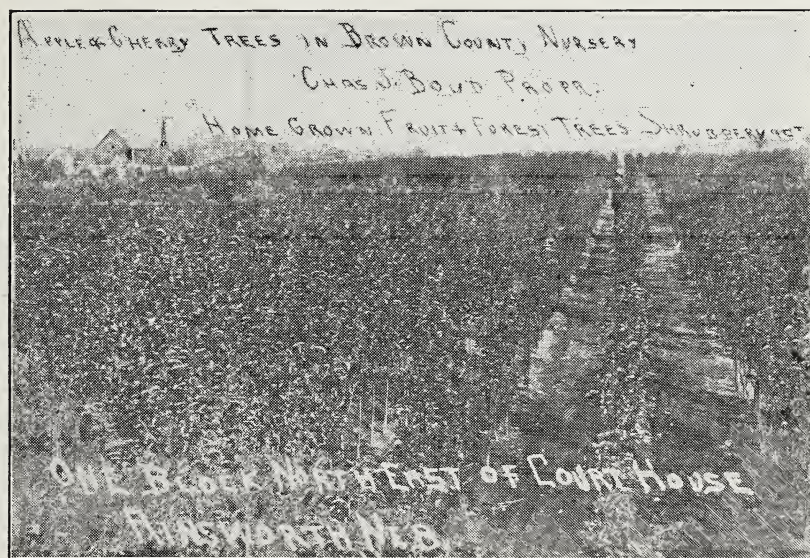 APPLE & CHERRY TREES IN BROWN COUNTY NURSERY
CHAS. J. BOYD PROPR.
HOME GROWN FRUIT & FOREST TREES SHRUBBERY
ONE BLOCK NORTH EAST OF COURT HOUSE
AINSWORTH NEB.